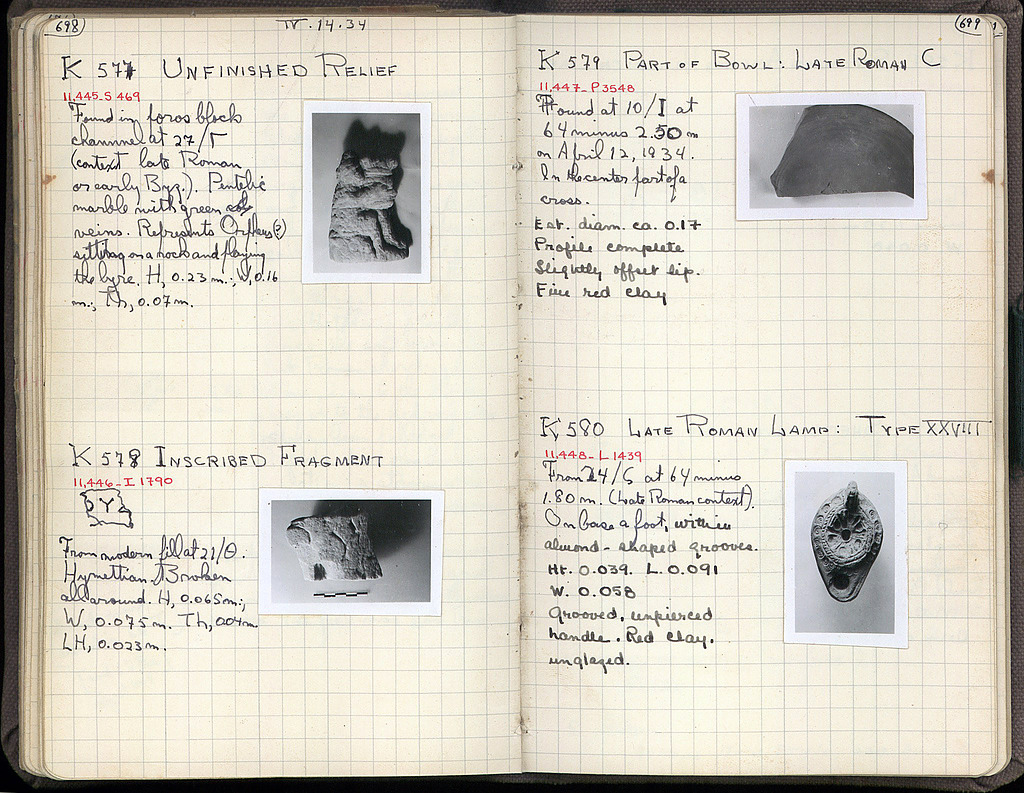 698
IV.14.34
K 577 UNFINISHED RELIEF
11,445-S 469
Found in poros block
channel at 27/Γ
(context late Roman
or early Byz.). Pentelic
marble with green
veins. Represents Orpheus(?)
sitting on a rock and playing
the lyre. H, 0.23 m.; W, 0.16
m.; Th, 0.07 m.
K 578 INSCRIBED FRAGMENT
11,446-I 1790
ΟΥ
From modern fill at 21/Θ.
Hymettian. Broken
all around. H, 0.065m.;
W, 0.075 m. Th, 0.04m.
LH, 0.023 m.
699
K 579 PART OF BOWL: LATE ROMAN C
11,447-P3548
Found at 10/I at
64 minus 2.50 m
on April 12, 1934.
In the center part of a
cross.
Est. diam. ca. 0.17
Profile complete
Slightly offset lip.
Fine red clay
K 580 LATE ROMAN LAMP: TYPE XXVIII
11,448-L 1439
From 14/S at 64 minus
1.80 m. (Late Roman context).
On base a foot, within
almond-shaped grooves.
Ht. 0.039. L. 0.091
W. 0.058
Grooved, unpierced
handle. Red clay.
unglazed.